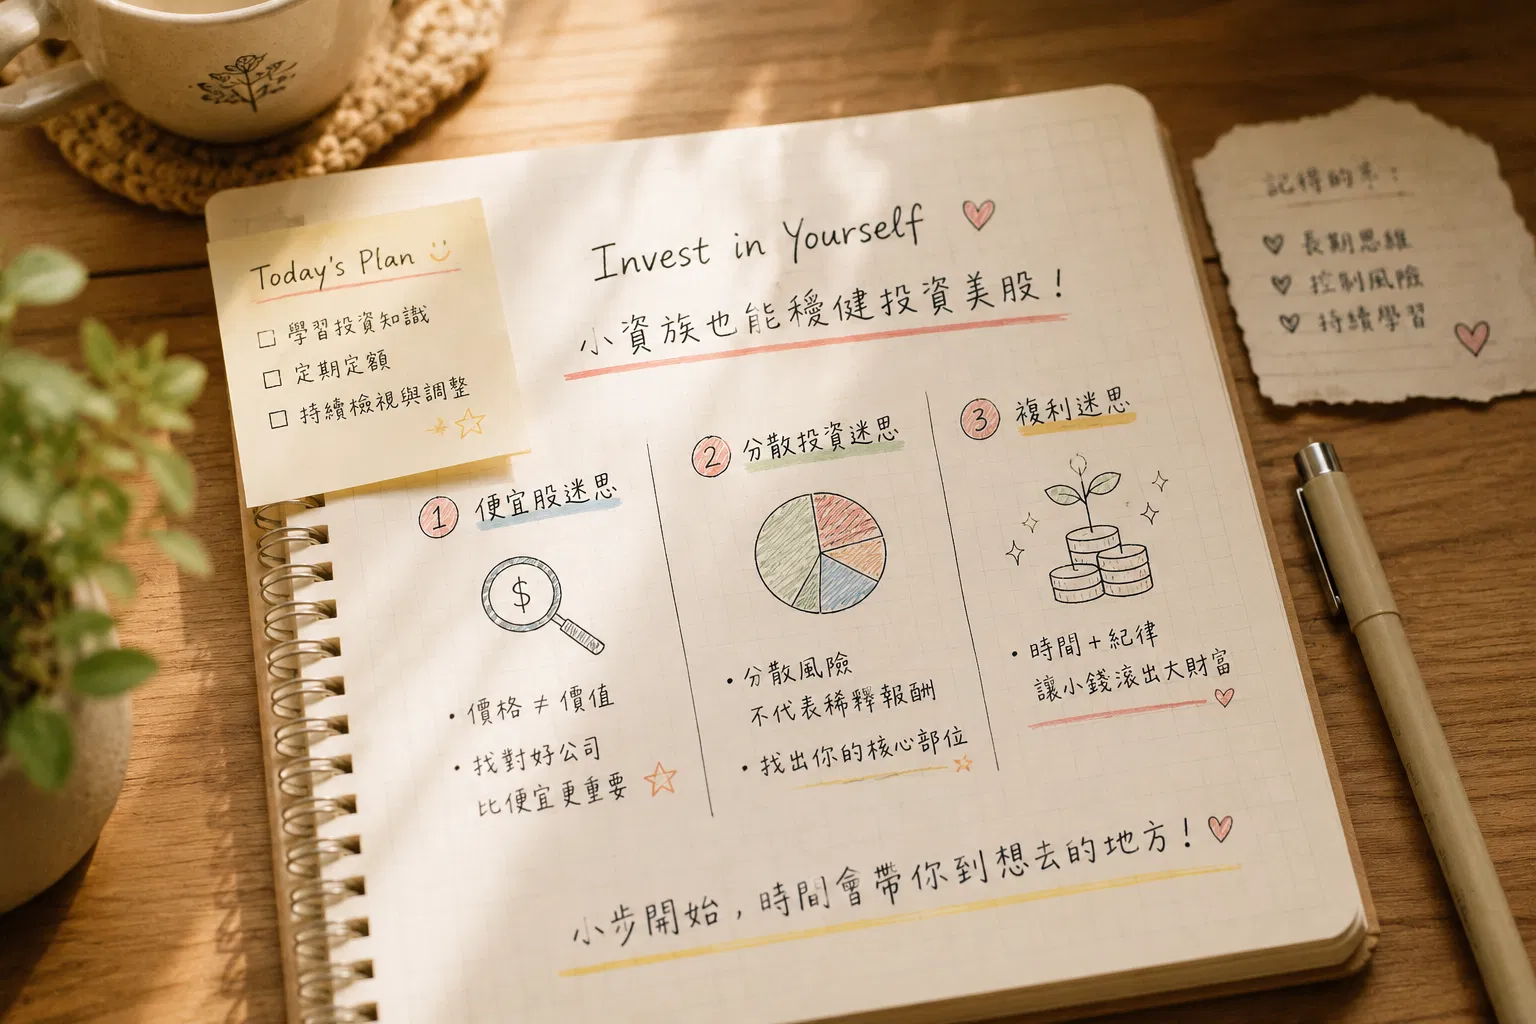 Today's Plan
學習投資知識
定期定額
持續檢視與調整
Invest in Yourself
小資族也能穩健投資美股！
1 便宜股迷思
$
・價格 ≠ 價值
・找對好公司
比便宜更重要
2 分散投資迷思
・分散風險
不代表稀釋報酬
・找出你的核心部位
3 複利迷思
・時間＋紀律
讓小錢滾出大財富
小步開始，時間會帶你到想去的地方！
記得的：
長期思維
控制風險
持續學習